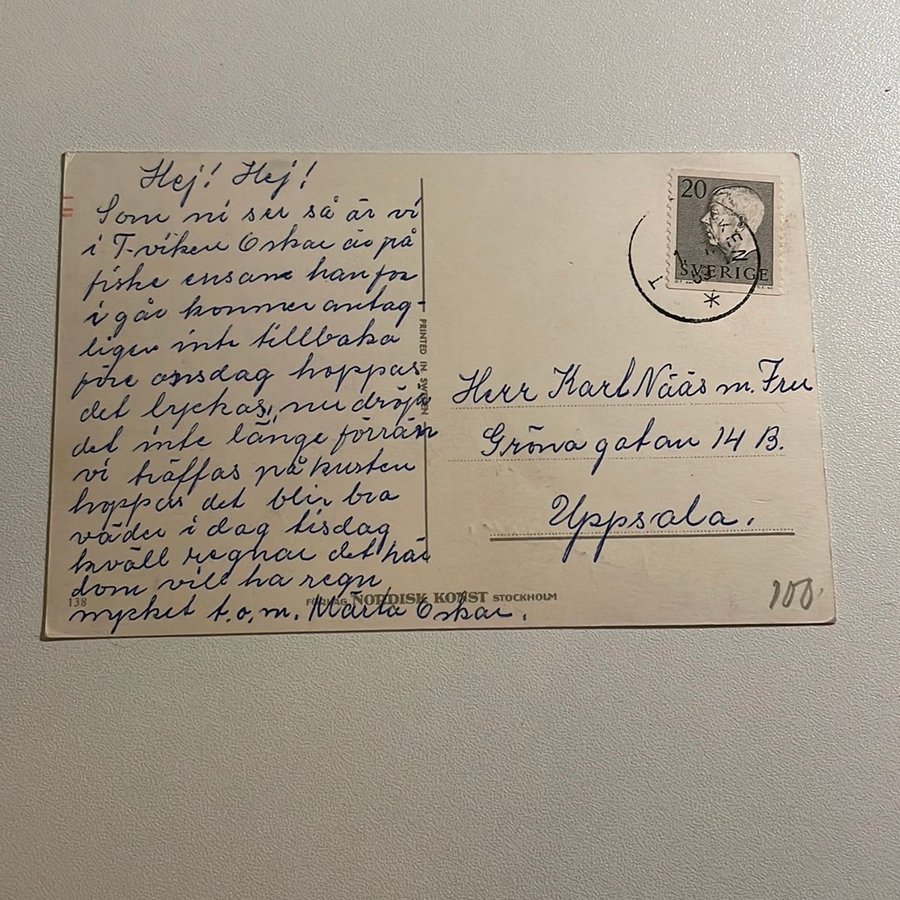 Hej! Hej!
Som ni ser så är vi
i T-viken Oskar är på
fiske ensam han for
i går kommer antag-
ligen inte tillbaka
före onsdag hoppas
det lyckas, nu dröjer
det inte länge förrän
vi träffas på kusten
hoppas det blir bra
väder i dag tisdag
kväll regnar det här
dom vill ha regn
mycket t.o.m. Märta Oskar.
138
PRINTED IN SWEDEN
FÖRLAG NORDISK KONST STOCKHOLM
20
SVERIGE
KEN
Herr Karl Nääs m. Fru
Gröna gatan 14 B.
Uppsala.
100